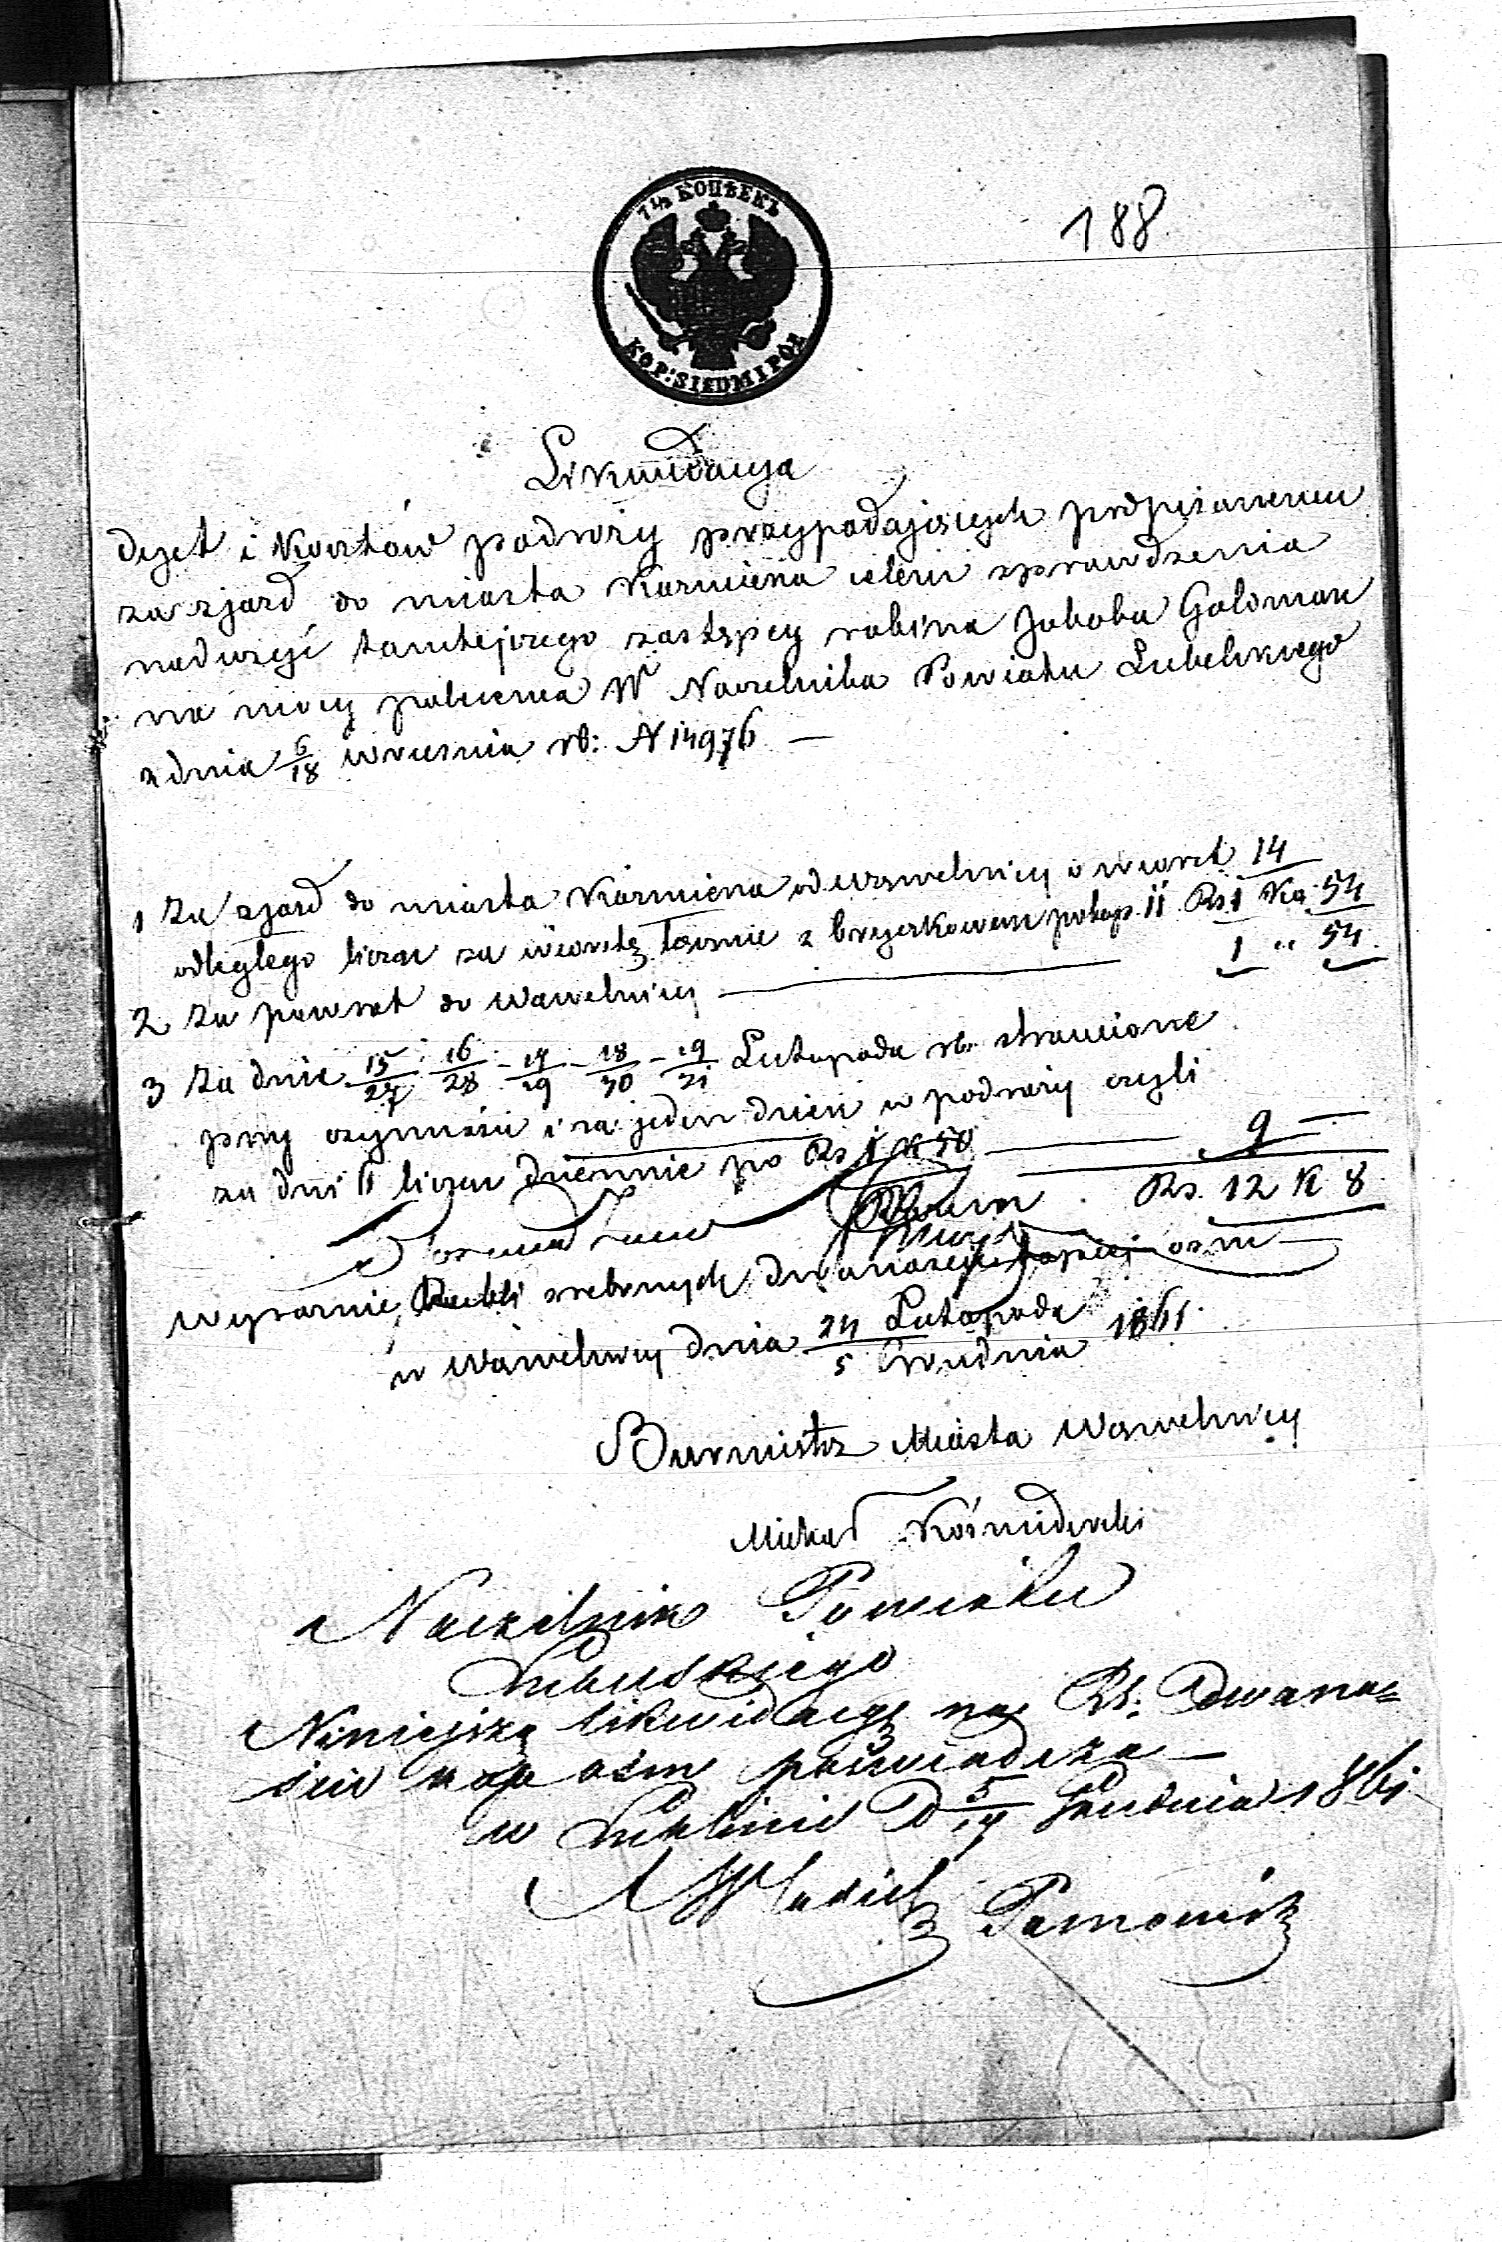 7½ КОПѢЕКЪ
KOP: SIEDM I PÓŁ
188
Likwidacya
dyet i kosztów podróży przypadających podpisanemu
za zjazd do miasta Kazmierza celem sprawdzenia
nadużyć tamtejszego zastępcy rabina Jakoba Goldman
na mocy polecenia W Naczelnika Powiatu Lubelskiego
z dnia 6/18 września rb: N 14976 —
1 Za zjazd do miasta Kazmierza od Wąwelnicy o wiorst 14
odległego licząc za wiorstę łącznie z bryczkowem po kop. 11 Rs 1 Ko 54
2 Za powrot do Wawelnicy — 1 " 54
3 Za dnie 15/27 - 16/28 - 17/29 - 18/30 - 19/31 Listopada rb. stracone
przy czynności i za jeden dzień w podróży czyli
za dni 6 licząc dziennie po Rs 1 K 50 — 9 —
Razem Rs. 12 K 8
Wyraznie Rubli srebrnych dwanaście kopiej osm
w Wąwelnicy dnia 24 Listopada / 5 Grudnia 1861
Burmistrz Miasta Wąwelnicy
Michał Kośmiderski
Naczelnik Powiatu
Lubelskiego
Niniejszą likwidacyę na Rs. Dwana=
ście kop osm poświadcza —
w Lublinie D 5/17 Grudnia 1861